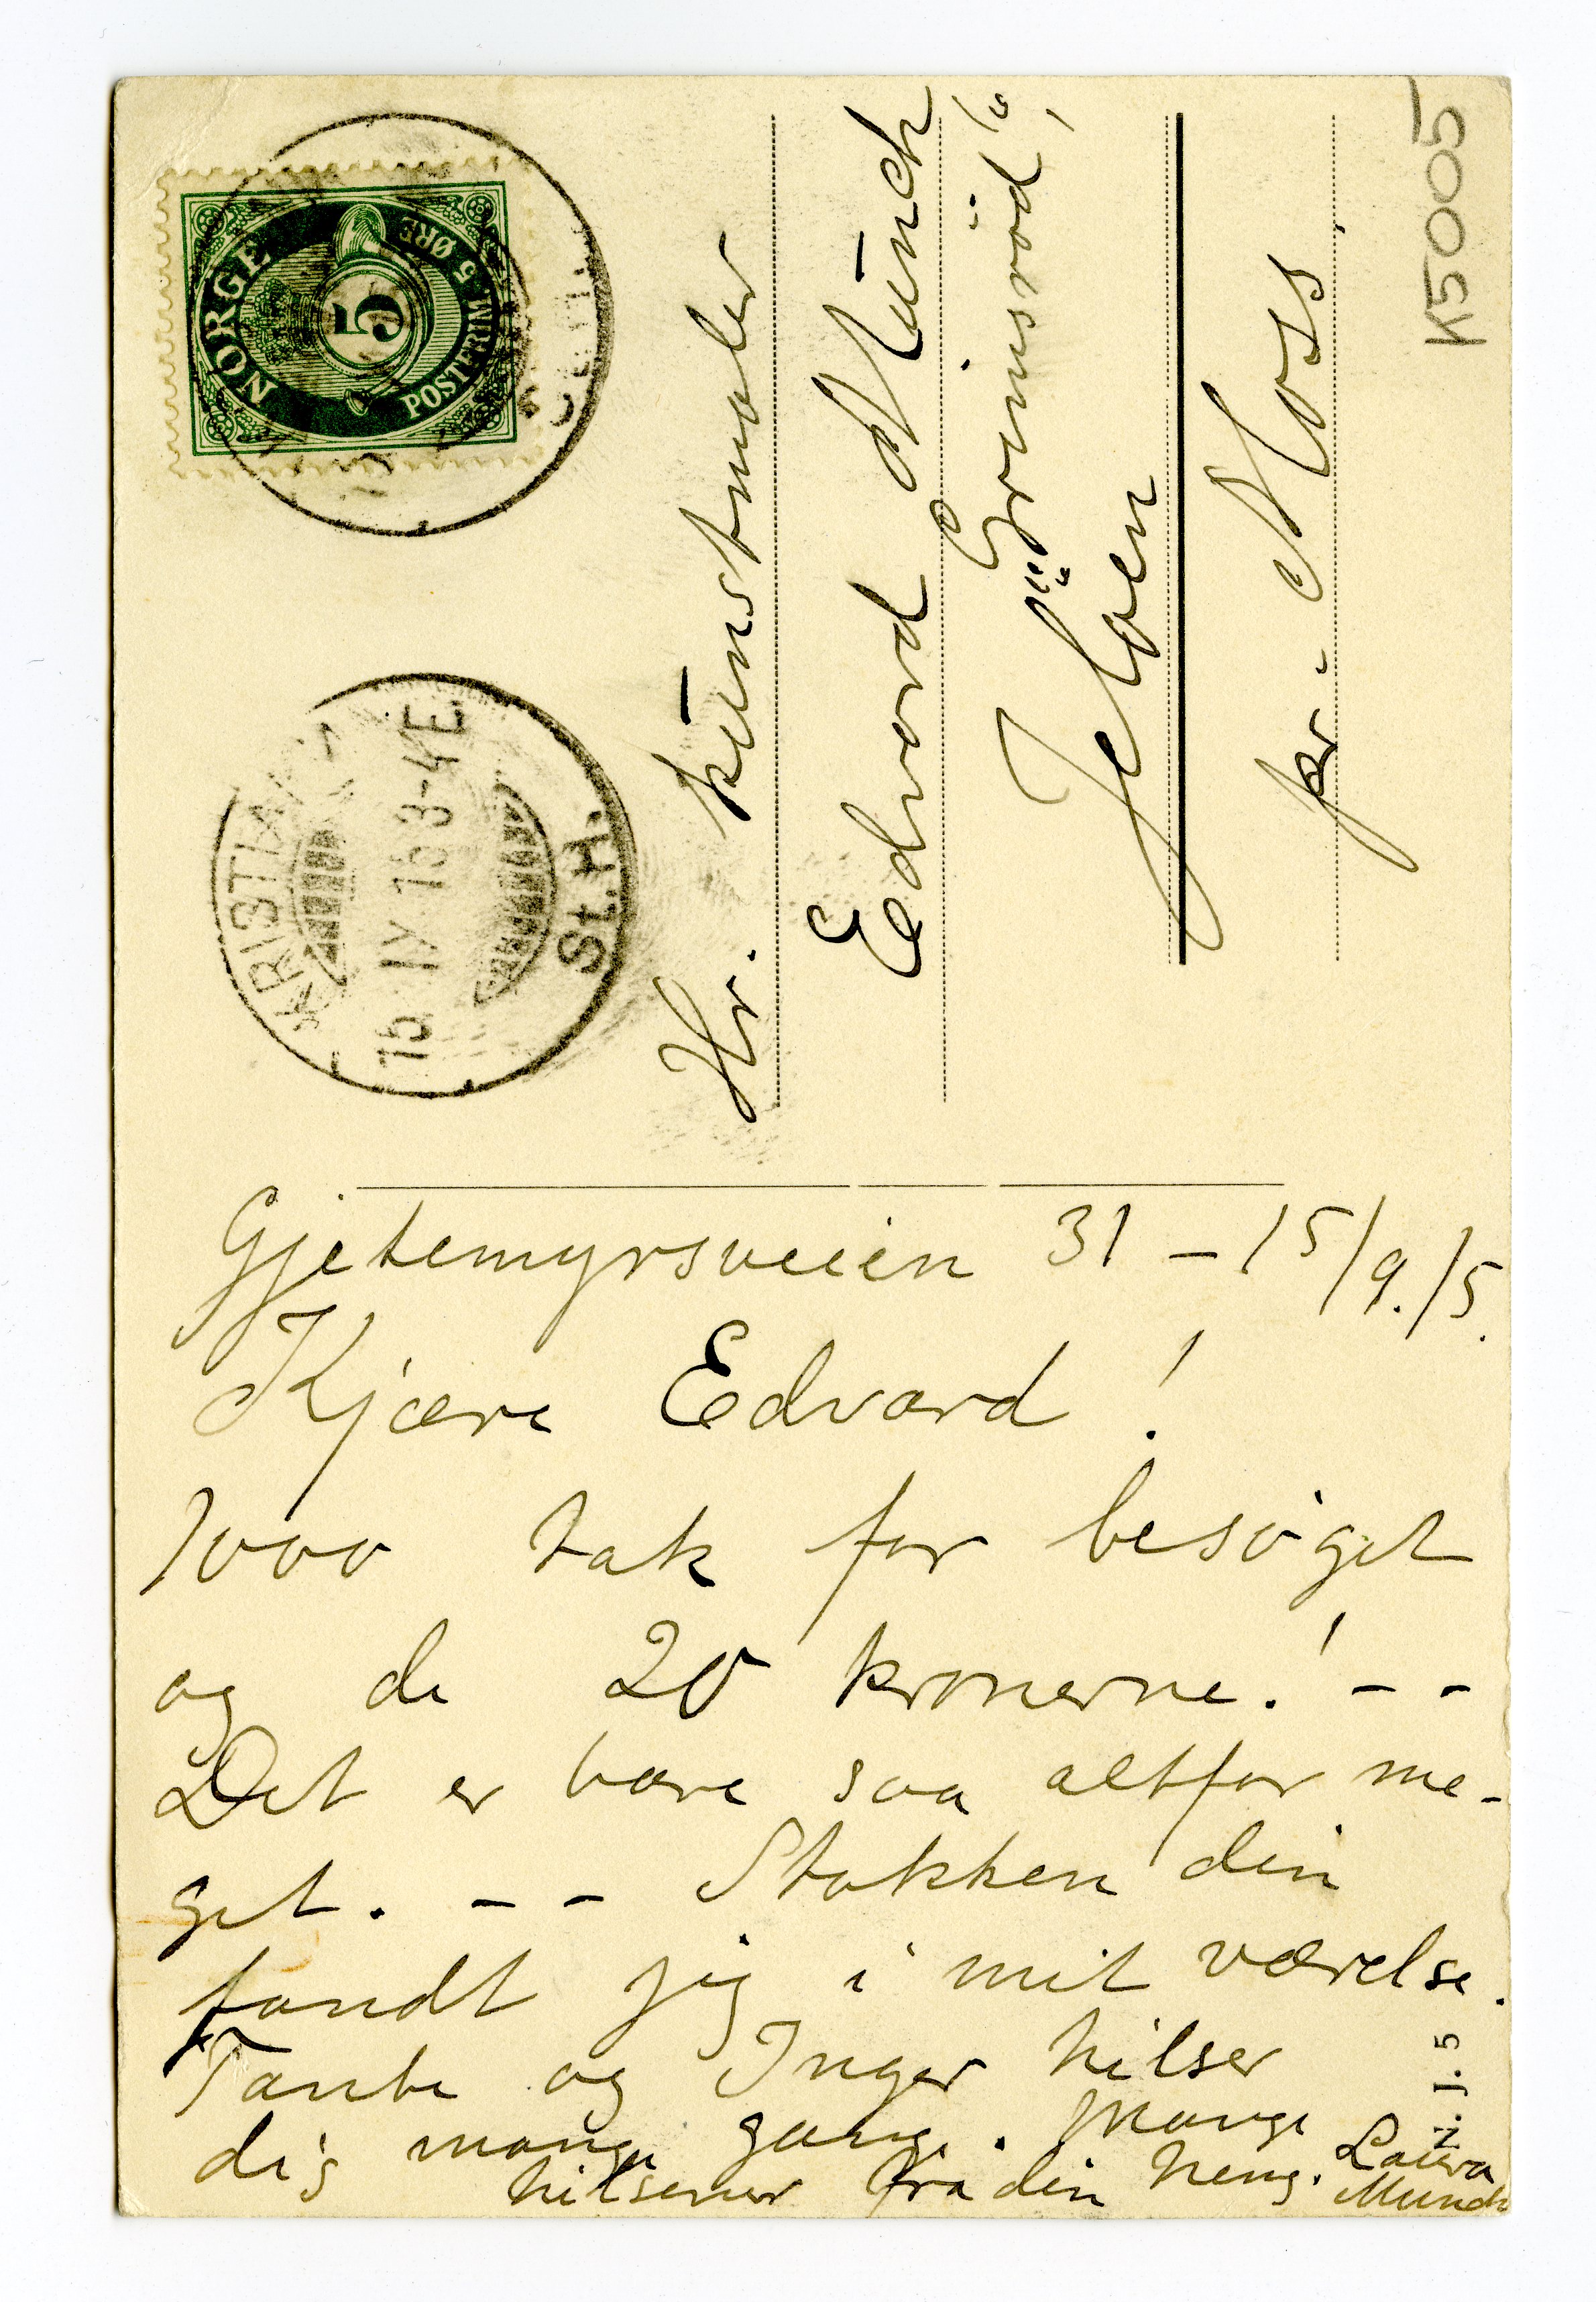 NORGE
POSTFRIM 5 ØRE
5
KRISTIANIA
15 IX 15 3-4E
St.H.
Hr. kunstmaler
Edvard Munch
Grimsröd,
Jeløen
pr. Moss.
K5005
Gjetemyrsveien 31 – 15/9. 15.
Kjære Edvard!
1000 tak for besöget
og de 20 kronerne! – –
Det er bare saa altfor me-
get. – – Stokken din
fandt jeg i mit værelse.
Tante og Inger hilser
dig mange gange. Mange
hilsener fra din heng. Laura
Munch
N. J. 5